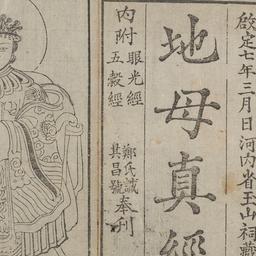 啟定七年三月日河內省玉山祠藏
地母真經
內附眼光經
五穀經
鄭氏誠
其昌號
奉刊